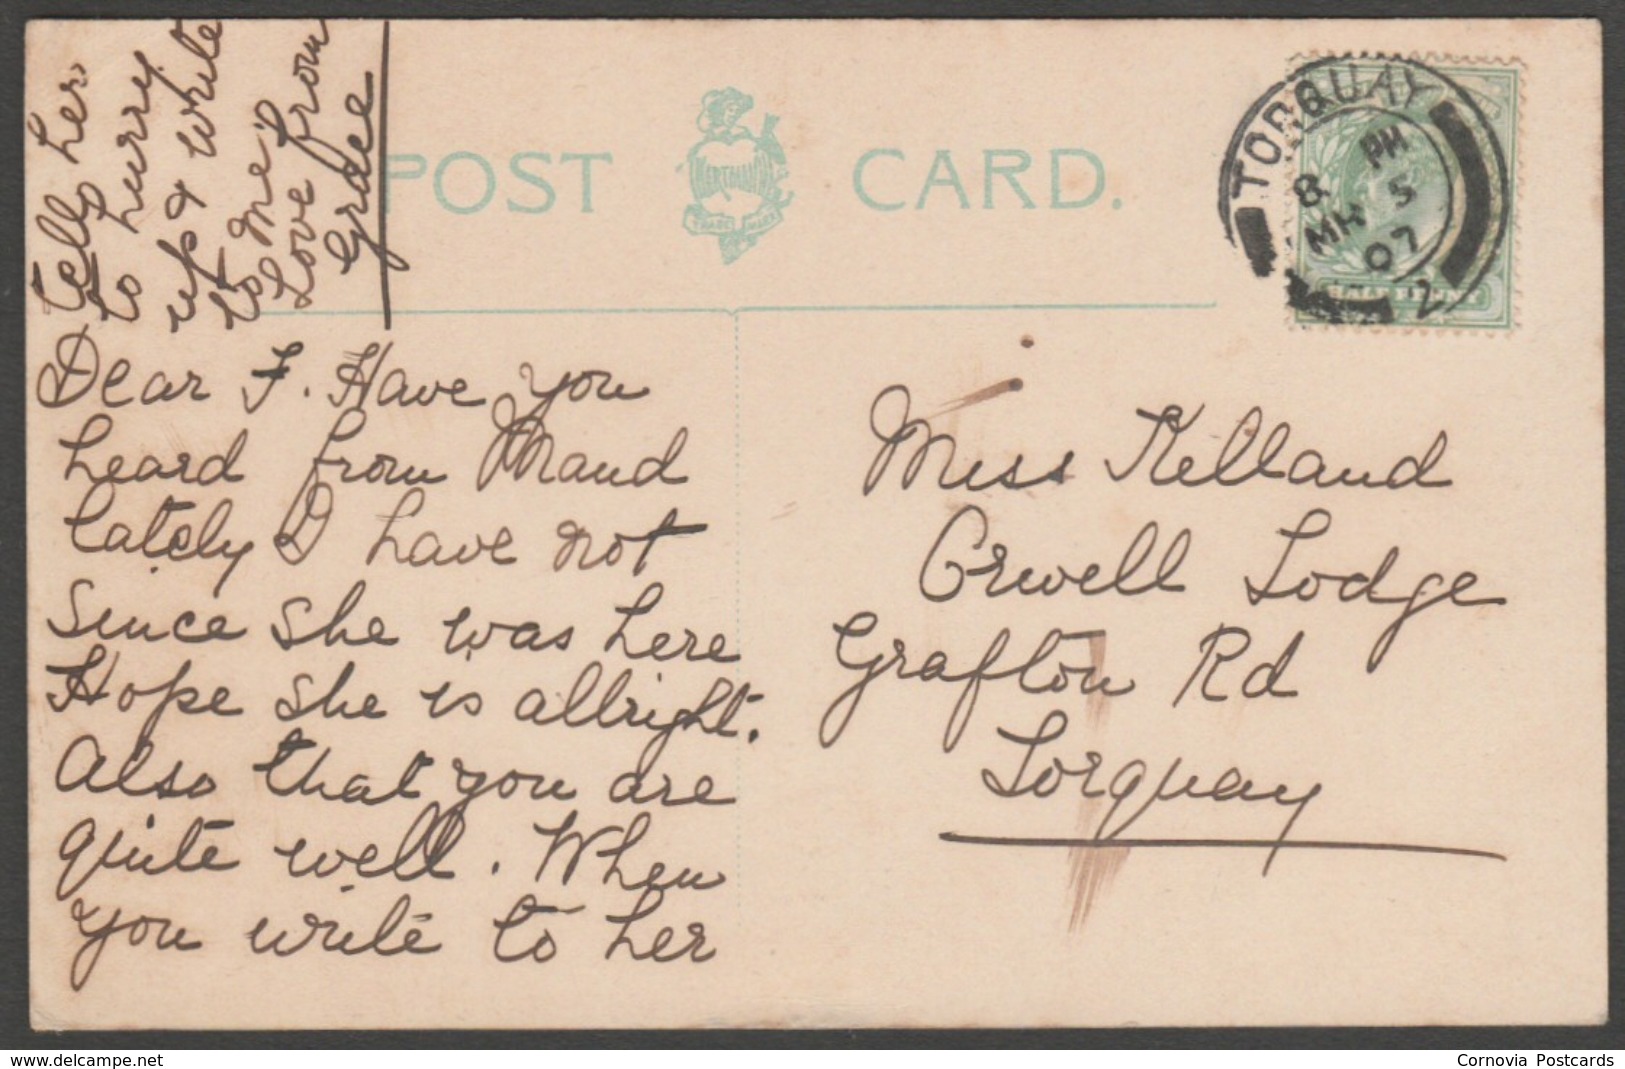 POST CARD.
TORQUAY
8 PM
MR 5
07
2
HALFPENNY
TRADE MARK
Dear F. Have you
heard from Maud
lately I have not
since she was here
Hope she is allright.
Also that you are
quite well. When
you write to her
tell her
to hurry
up & write
to me.
Love from
Grace
Miss Kelland
Orwell Lodge
Grafton Rd
Torquay
www.delcampe.net
Cornovia Postcards